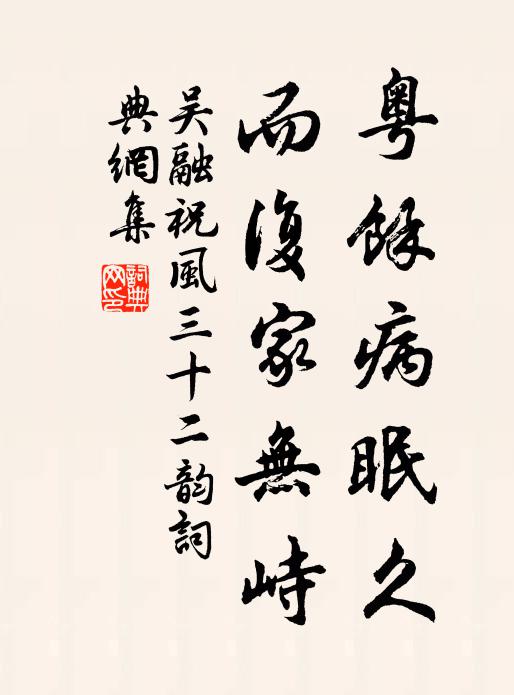 粵餘病眠久
而復家無峙
吳融祝風三十二韵詞
典網集
詞典网印